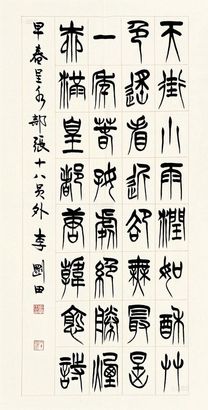 天街小雨潤如酥艸
色遙看近卻無最是
一年春好處絕勝煙
柳滿皇都唐韓愈詩
早春呈水部張十八員外 李剛田